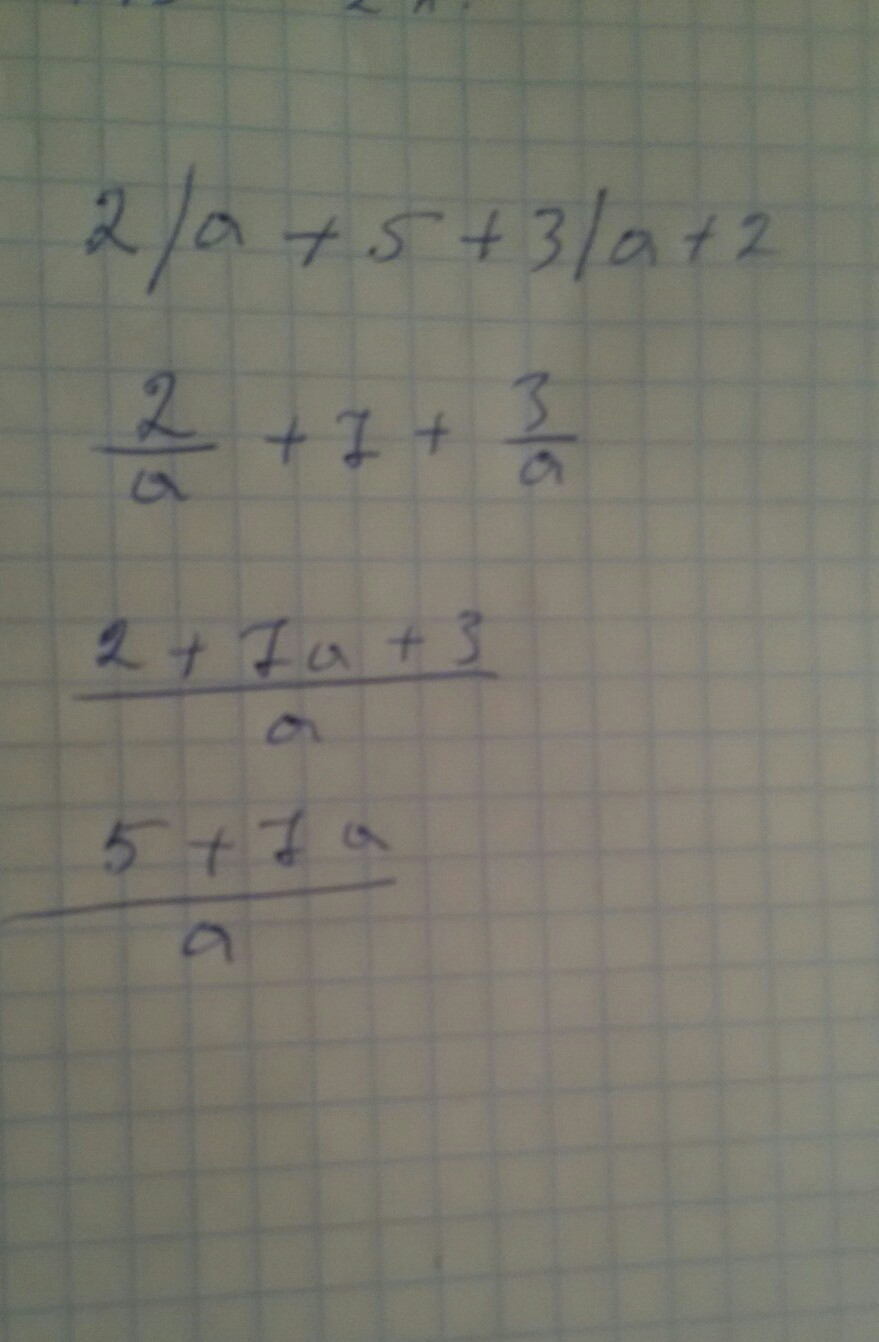 2/a + 5 + 3/a + 2
2/a + 7 + 3/a
2 + 7a + 3
a
5 + 7a
a